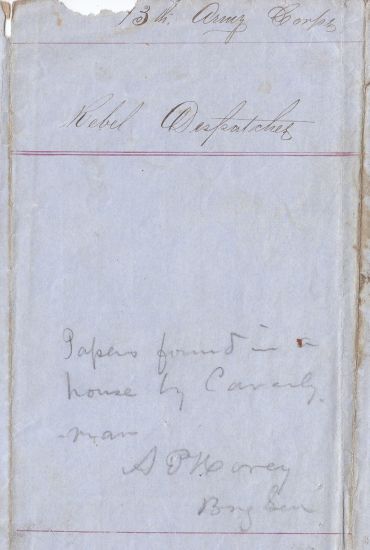 13th. Army Corps
Rebel Despatches
Papers found in a
house by Caverly
man
A P Hovey
Brig Gen